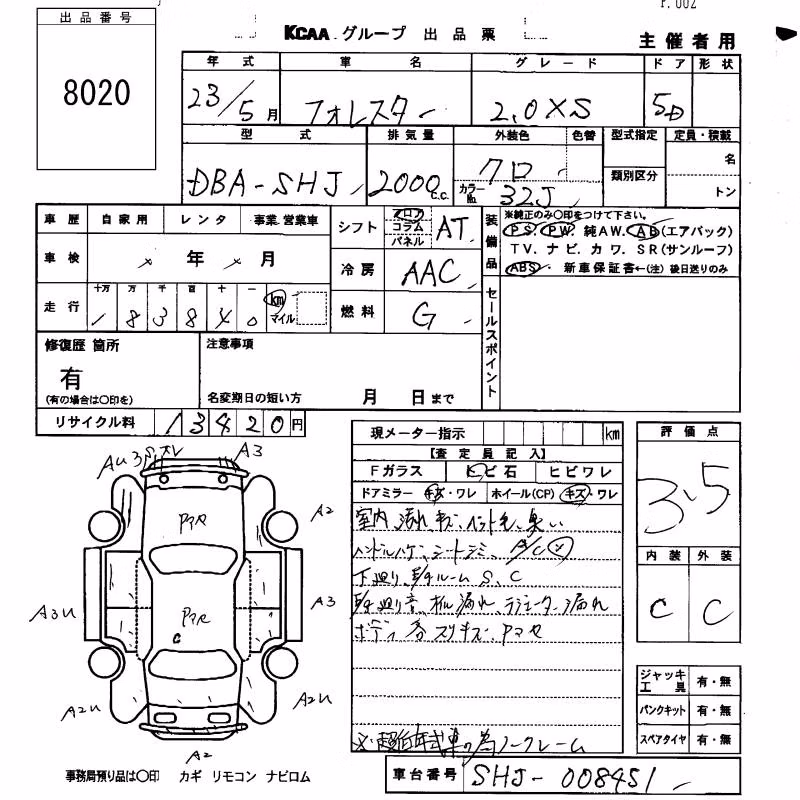 出品番号
8020
KCAA グループ 出品票
主催者用
年式 車名 グレード ドア 形状
23/5月 フォレスター 2.0XS 5D
型式 排気量 外装色 色替 型式指定 定員・積載
DBA-SHJ 2000c.c. クロ カラーNo. 32J 類別区分 名
トン
車歴 自家用 レンタ 事業 営業車
シフト フロア コラム パネル AT
装備品 ※純正のみ○印をつけて下さい。
PS. PW. 純AW. AB(エアバック)
TV. ナビ. カワ. SR(サンルーフ)
ABS. 新車保証書←(注)後日送りのみ
車検 × 年 × 月
冷房 AAC
走行 十万 万 千 百 十 一
183840 km マイル
燃料 G
セールスポイント
修復歴 箇所
有
(有の場合は○印を)
注意事項
名変期日の短い方 月 日まで
リサイクル料 13420円
現メーター指示 km
【査定員記入】
Fガラス トビ石 ヒビワレ
ドアミラー キズ・ワレ ホイール(CP) キズ・ワレ
室内、汚れ、キズ、ペット毛、臭い
ハンドルハゲ、シートシミ、A/C
下廻り、ルーム S、C
廻り音、オイル漏れ、ラジエーター漏れ
ボディ各スリキズ、アマセ
ノークレーム
評価点
3.5
内装 外装
C C
ジャッキ工具 有・無
パンクキット 有・無
スペアタイヤ 有・無
AU3 A3
A2
アマセ
A3U アマセ A3
C
A2U A2U
A2
事務局預り品は○印 カギ リモコン ナビロム
車台番号 SHJ-008451